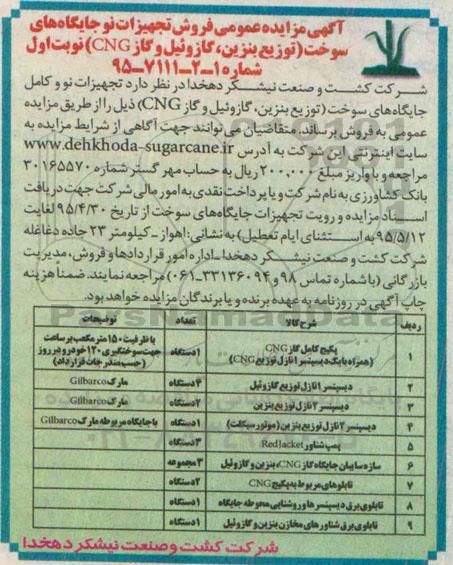 آگهی مزایده عمومی فروش تجهیزات نو جایگاه‌های
سوخت (توزیع بنزین، گازوئیل و گاز CNG) نوبت اول
شماره ۱-۲-۷۱۱۱-۹۵
شرکت کشت و صنعت نیشکر دهخدا در نظر دارد تجهیزات نو و کامل
جایگاه‌های سوخت (توزیع بنزین، گازوئیل و گاز CNG) ذیل را از طریق مزایده
عمومی به فروش برساند. متقاضیان می‌توانند جهت آگاهی از شرایط مزایده به
سایت اینترنتی این شرکت به آدرس www.dehkhoda-sugarcane.ir
مراجعه و با واریز مبلغ ۲۰۰,۰۰۰ ریال به حساب مهر گستر شماره ۳۰۱۶۵۵۷۰
بانک کشاورزی به نام شرکت و یا پرداخت نقدی به امور مالی شرکت جهت دریافت
اسناد مزایده و رویت تجهیزات جایگاه‌های سوخت از تاریخ ۹۵/۴/۳۰ لغایت
۹۵/۵/۱۲ (به استثنای ایام تعطیل) به نشانی: اهواز - کیلومتر ۲۳ جاده دغاغله
شرکت کشت و صنعت نیشکر دهخدا - اداره امور قراردادها و فروش، مدیریت
بازرگانی (با شماره تماس ۹۸ و ۳۳۱۳۶۰۹۴-۰۶۱) مراجعه نمایند. ضمنا هزینه
چاپ آگهی در روزنامه به عهده برنده و یا برندگان مزایده خواهد بود.
ردیف شرح کالا تعداد توضیحات
۱ پکیج کامل گاز CNG (همراه با یک دیسپنسر ۱ نازل توزیع CNG) ۱ دستگاه با ظرفیت ۱۵۰ متر مکعب بر ساعت جهت سوختگیری ۱۲۰ خودرو در روز (حسب مندرجات قرارداد)
۲ دیسپنسر ۱ نازل توزیع گازوئیل ۴ دستگاه مارک Gilbarco
۳ دیسپنسر ۲ نازل توزیع بنزین ۲ دستگاه مارک Gilbarco
۴ دیسپنسر ۲ نازل توزیع بنزین (موتور سیکلت) ۱ دستگاه با جایگاه مربوطه مارک Gilbarco
۵ پمپ شناور Red Jacket ۳ دستگاه
۶ سازه سایبان جایگاه گاز CNG، بنزین و گازوئیل ۳ مجموعه
۷ تابلوهای مربوط به پکیج CNG ۲ دستگاه
۸ تابلوی برق دیسپنسرها و روشنایی محوطه جایگاه ۱ دستگاه
۹ تابلوی برق شناورهای مخازن بنزین و گازوئیل ۱ دستگاه
شرکت کشت و صنعت نیشکر دهخدا